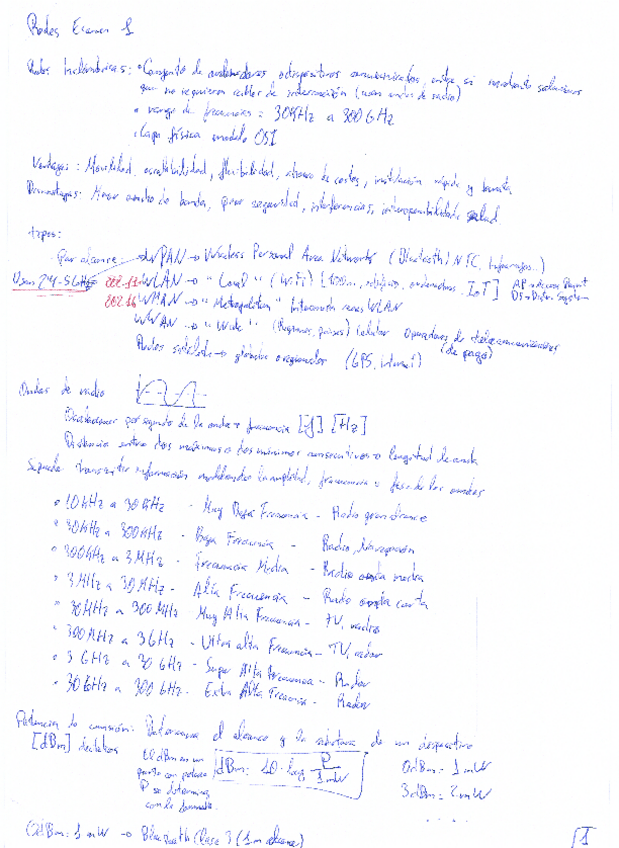 Redes Examen 1
Redes Inalámbricas: • Conjunto de ordenadores o dispositivos comunicados entre si mediante soluciones
que no requieren cables de interconexión (usan ondas de radio)
• rango de frecuencias: 30KHz a 300GHz
• Capa física modelo OSI
Ventajas: Movilidad, escalabilidad, flexibilidad, ahorro de costes, instalación rápida y barata
Desventajas: Menor ancho de banda, peor seguridad, interferencias, interoperabilidad, salud.
tipos:
Por alcance WPAN → Wireless Personal Area Networks (Bluetooth / NFC, Infrarrojos..)
Usan 2'4-5GHz 802.11 WLAN → "Local" (WiFi) [100m, ordenadores, IoT] AP → Access Point
802.16 WMAN → "Metropolitan" Interconecta WLAN DS → Distr. System
WWAN → "Wide" (Regiones, países) Celular Operadores de telecomunicaciones
(de pago)
Redes satélite → globales o regionales (GPS, Internet)
Ondas de radio
Oscilaciones por segundo de la onda → frecuencia [f] [Hz]
Distancia entre dos máximos o dos mínimos consecutivos → longitud de onda
Se puede transmitir información modulando la amplitud, frecuencia o fase de las ondas
• 10KHz a 30KHz - Muy Baja Frecuencia - Radio gran alcance
• 30KHz a 300KHz - Baja Frecuencia - Radio, Navegación
• 300KHz a 3MHz - Frecuencia Media - Radio onda media
• 3MHz a 30MHz - Alta Frecuencia - Radio onda corta
• 30MHz a 300MHz Muy Alta Frecuencia - TV, radio
• 300MHz a 3GHz - Ultra alta Frecuencia - TV, radar
• 3GHz a 30GHz - Super Alta Frecuencia - Radar
• 30GHz a 300GHz - Extra Alta Frecuencia - Radar
Potencia de emisión: Determina el alcance y la de un dispositivo
[dBm] decibelios
El dBm en un
punto con potencia
P se determina
con la fórmula
dBm = 10 · log P / 1mW
0dBm = 1mW
3dBm = 2mW
....
0dBm = 1mW → Bluetooth Clase 3 (1m alcance)
1